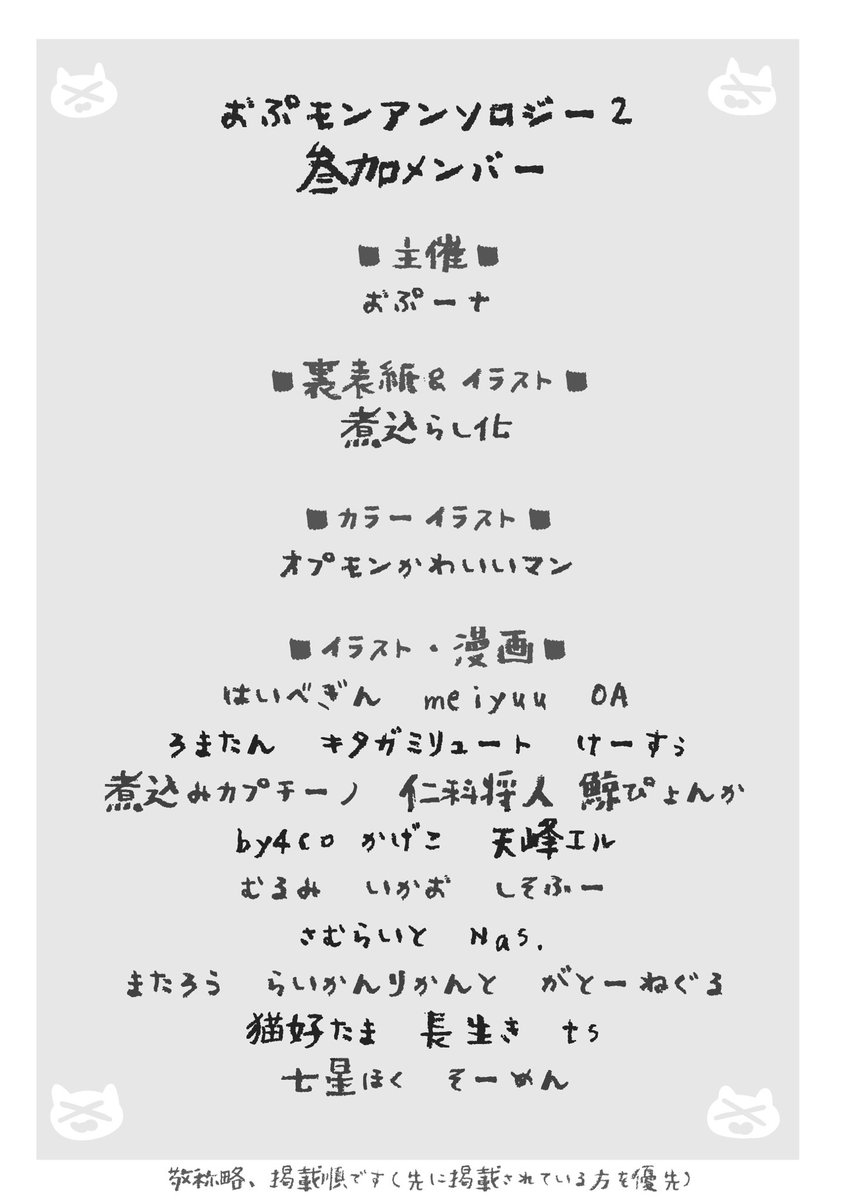 おぷモンアンソロジー2
参加メンバー
■主催■
おぷーナ
■裏表紙&イラスト■
煮込らし化
■カラーイラスト■
オプモンかわいいマン
■イラスト・漫画■
はいべぎん meiyuu OA
ろまたん キタガミリュート けーすぅ
煮込みカプチーノ 仁科将人 鯨ぴょんか
by4co かげこ 天峰エル
むるみ いかお しそふー
さむらいと Nas.
またろう らいかんりかんと がとーねぐる
猫好たま 長生き ts
七星ほく そーめん
敬称略、掲載順です(先に掲載されている方を優先)